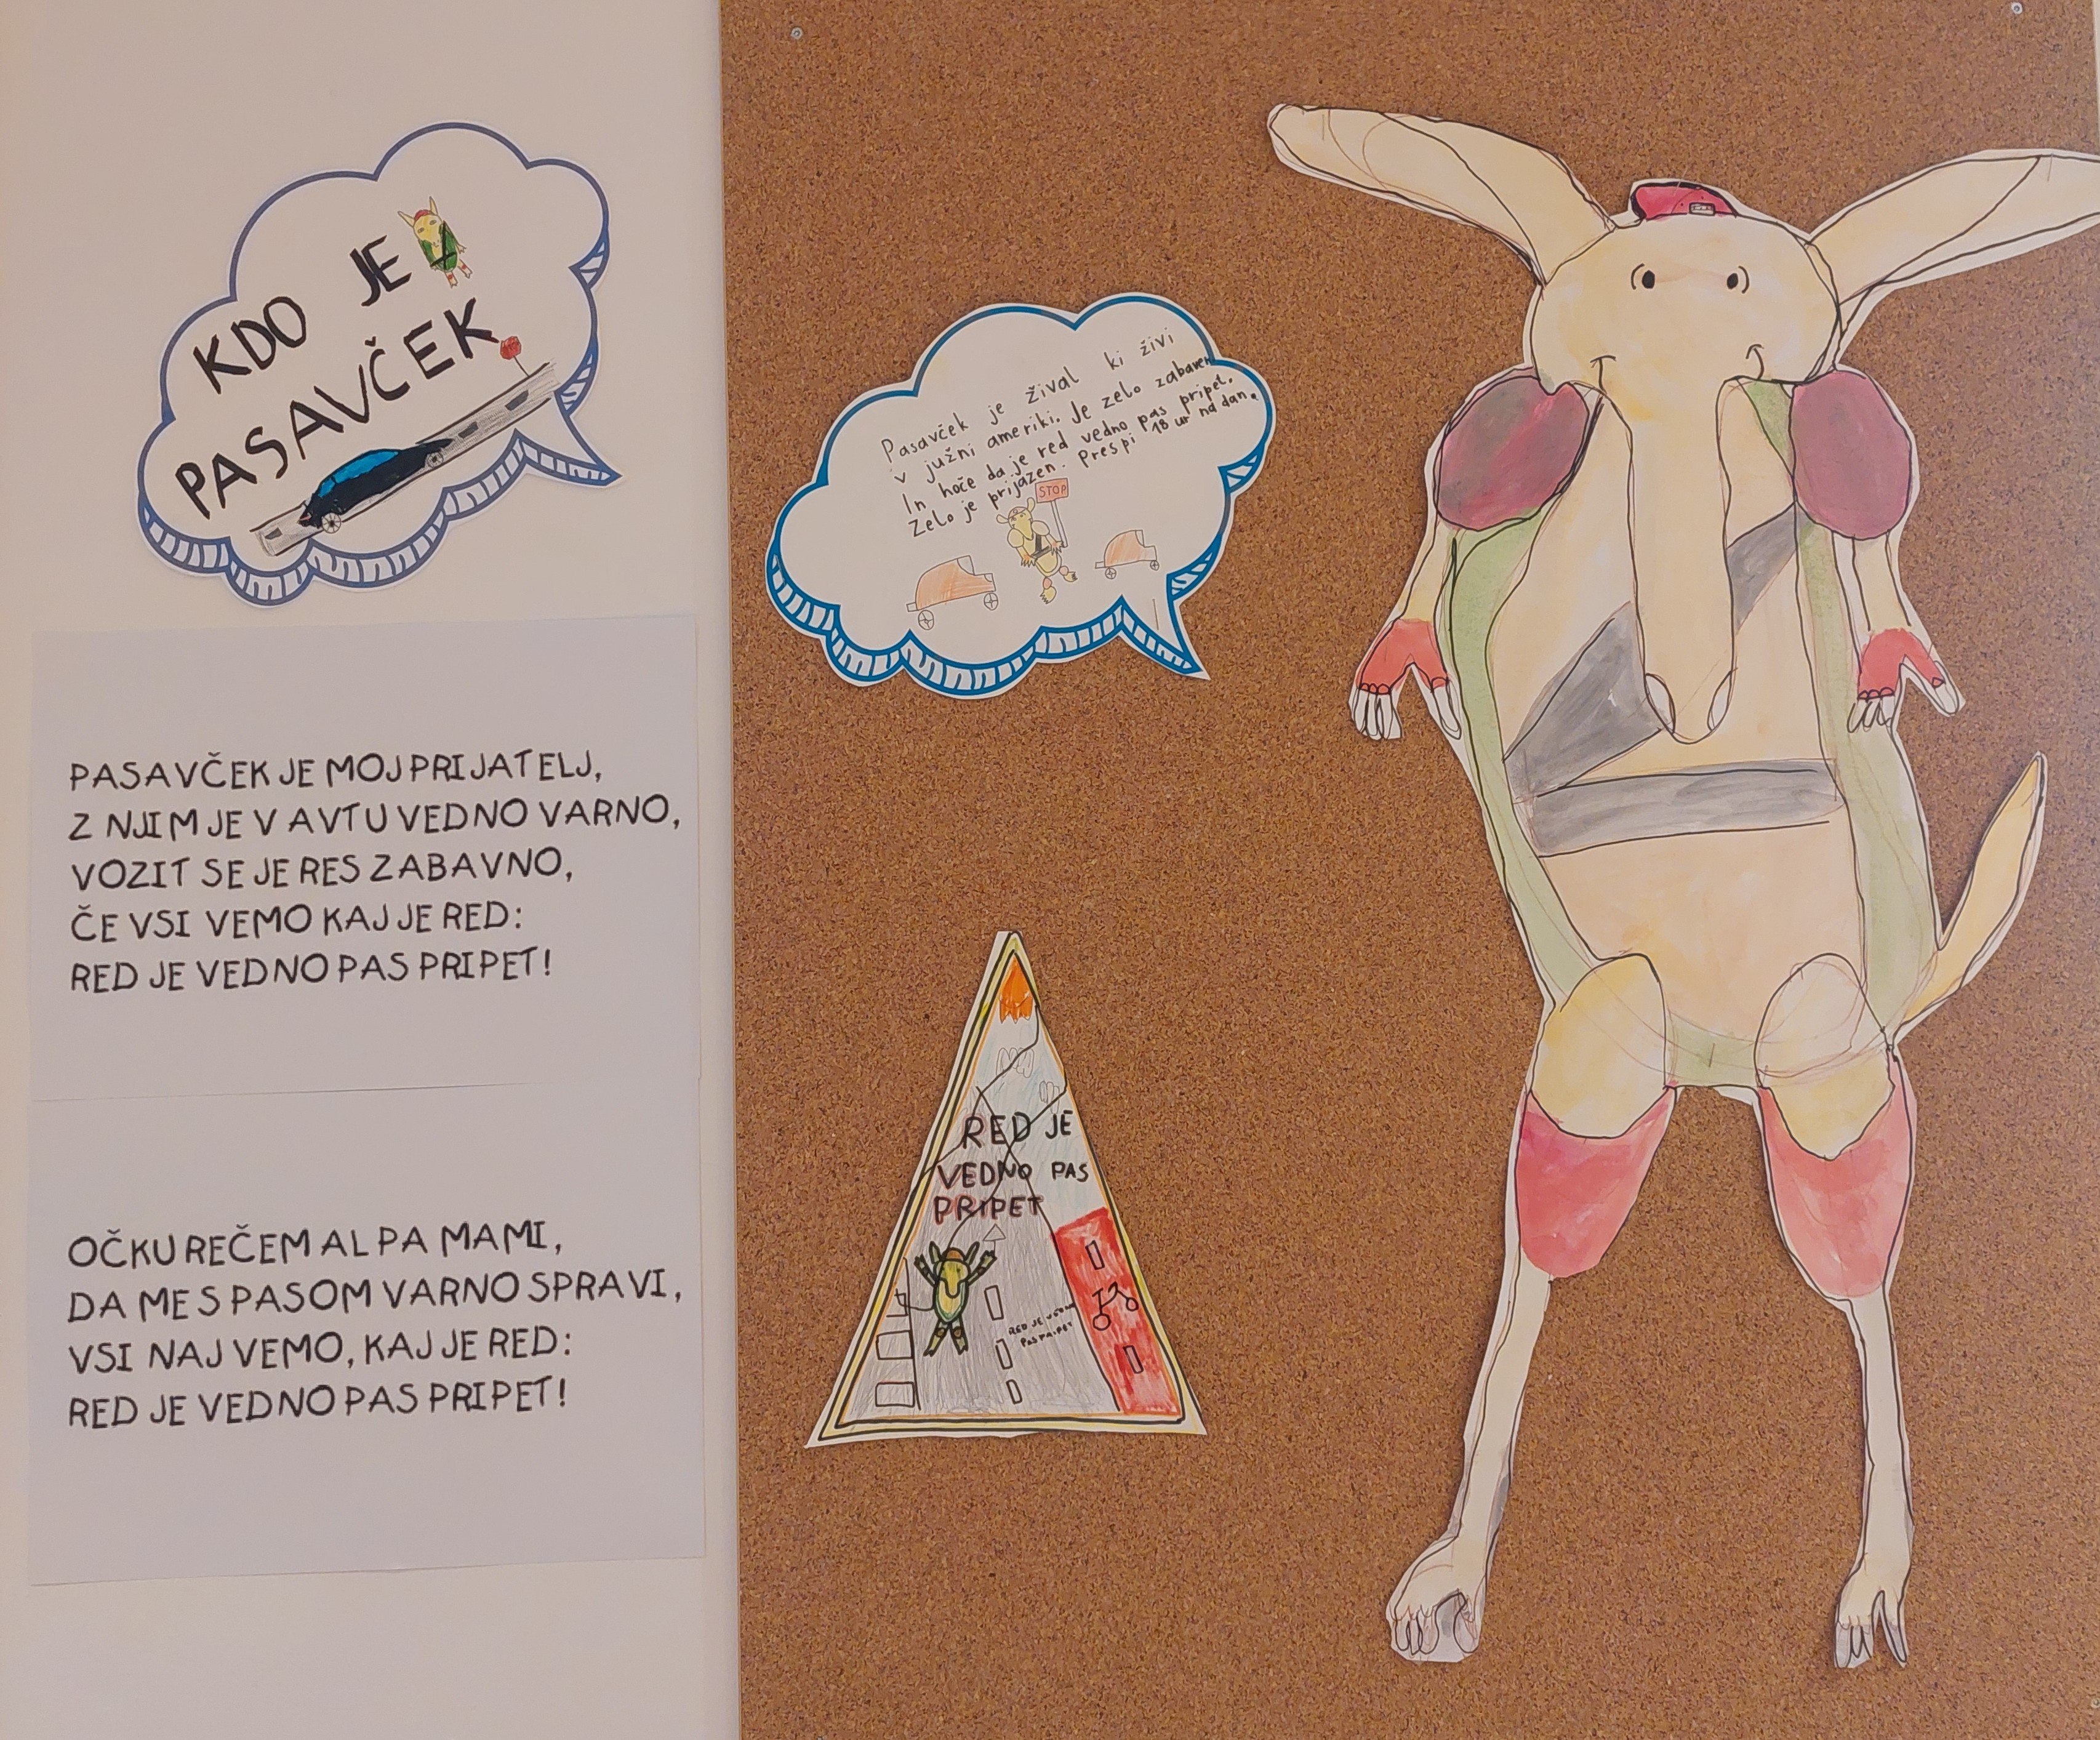 KDO JE
PASAVČEK
PASAVČEK JE MOJ PRIJATELJ,
Z NJIM JE V AVTU VEDNO VARNO,
VOZIT SE JE RES ZABAVNO,
ČE VSI VEMO KAJ JE RED:
RED JE VEDNO PAS PRIPET!
OČKU REČEM AL PA MAMI,
DA ME S PASOM VARNO SPRAVI,
VSI NAJ VEMO, KAJ JE RED:
RED JE VEDNO PAS PRIPET!
Pasavček je žival ki živi
v južni ameriki. Je zelo zabaven
In hoče da je red vedno pas pripet.
Zelo je prijazen. Prespi 18 ur na dan.
STOP
RED JE
VEDNO PAS
PRIPET
RED JE VEDNO
PAS PRIPET